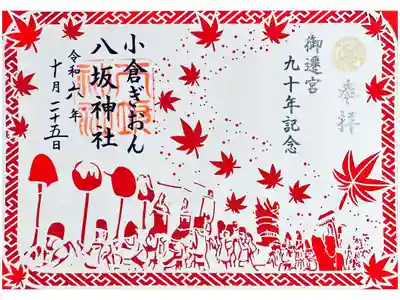 奉拝
御遷宮
九十年記念
小倉ぎおん
八坂神社
令和六年
十月二十五日